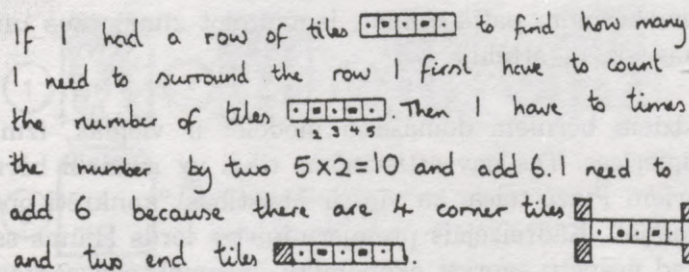 If I had a row of tiles to find how many
I need to surround the row I first have to count
the number of tiles . Then I have to times
1 2 3 4 5
the number by two 5×2=10 and add 6. I need to
add 6 because there are 4 corner tiles
and two end tiles .